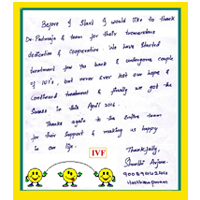 Before I start I would like to thank
Dr. Padmaja & team for their tremendous
dedication & cooperation. We have started
treatment for the back & undergone couple
of IUI's, but never ever lost our hope &
continued treatment & finally we got the
in this April 2016.
Thanks again to the entire team
for their support & making us happy
in our life.
Thankfully,
IVF